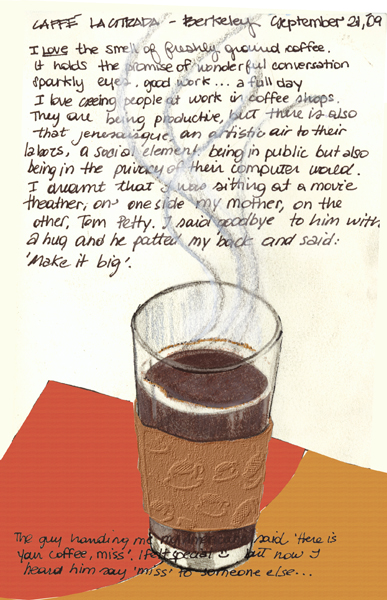 CAFFÉ LA STRADA - Berkeley, September 21, '09
I LOVE the smell of freshly ground coffee.
It holds the promise of wonderful conversation
sparkly eyes, good work... a full day
I love seeing people at work in coffee shops.
They are being productive, but there is also
that jenesaisquoi, an artistic air to their
labors, a social element, being in public but also
being in the privacy of their computer world.
I dreamt that I was sitting at a movie
theather, on one side my mother, on the
other, Tom Petty. I said goodbye to him with
a hug and he patted my back and said:
'Make it big'.
The guy handing me my americano said 'Here is
your coffee, miss'. I felt special but now I
heard him say 'miss' to someone else...